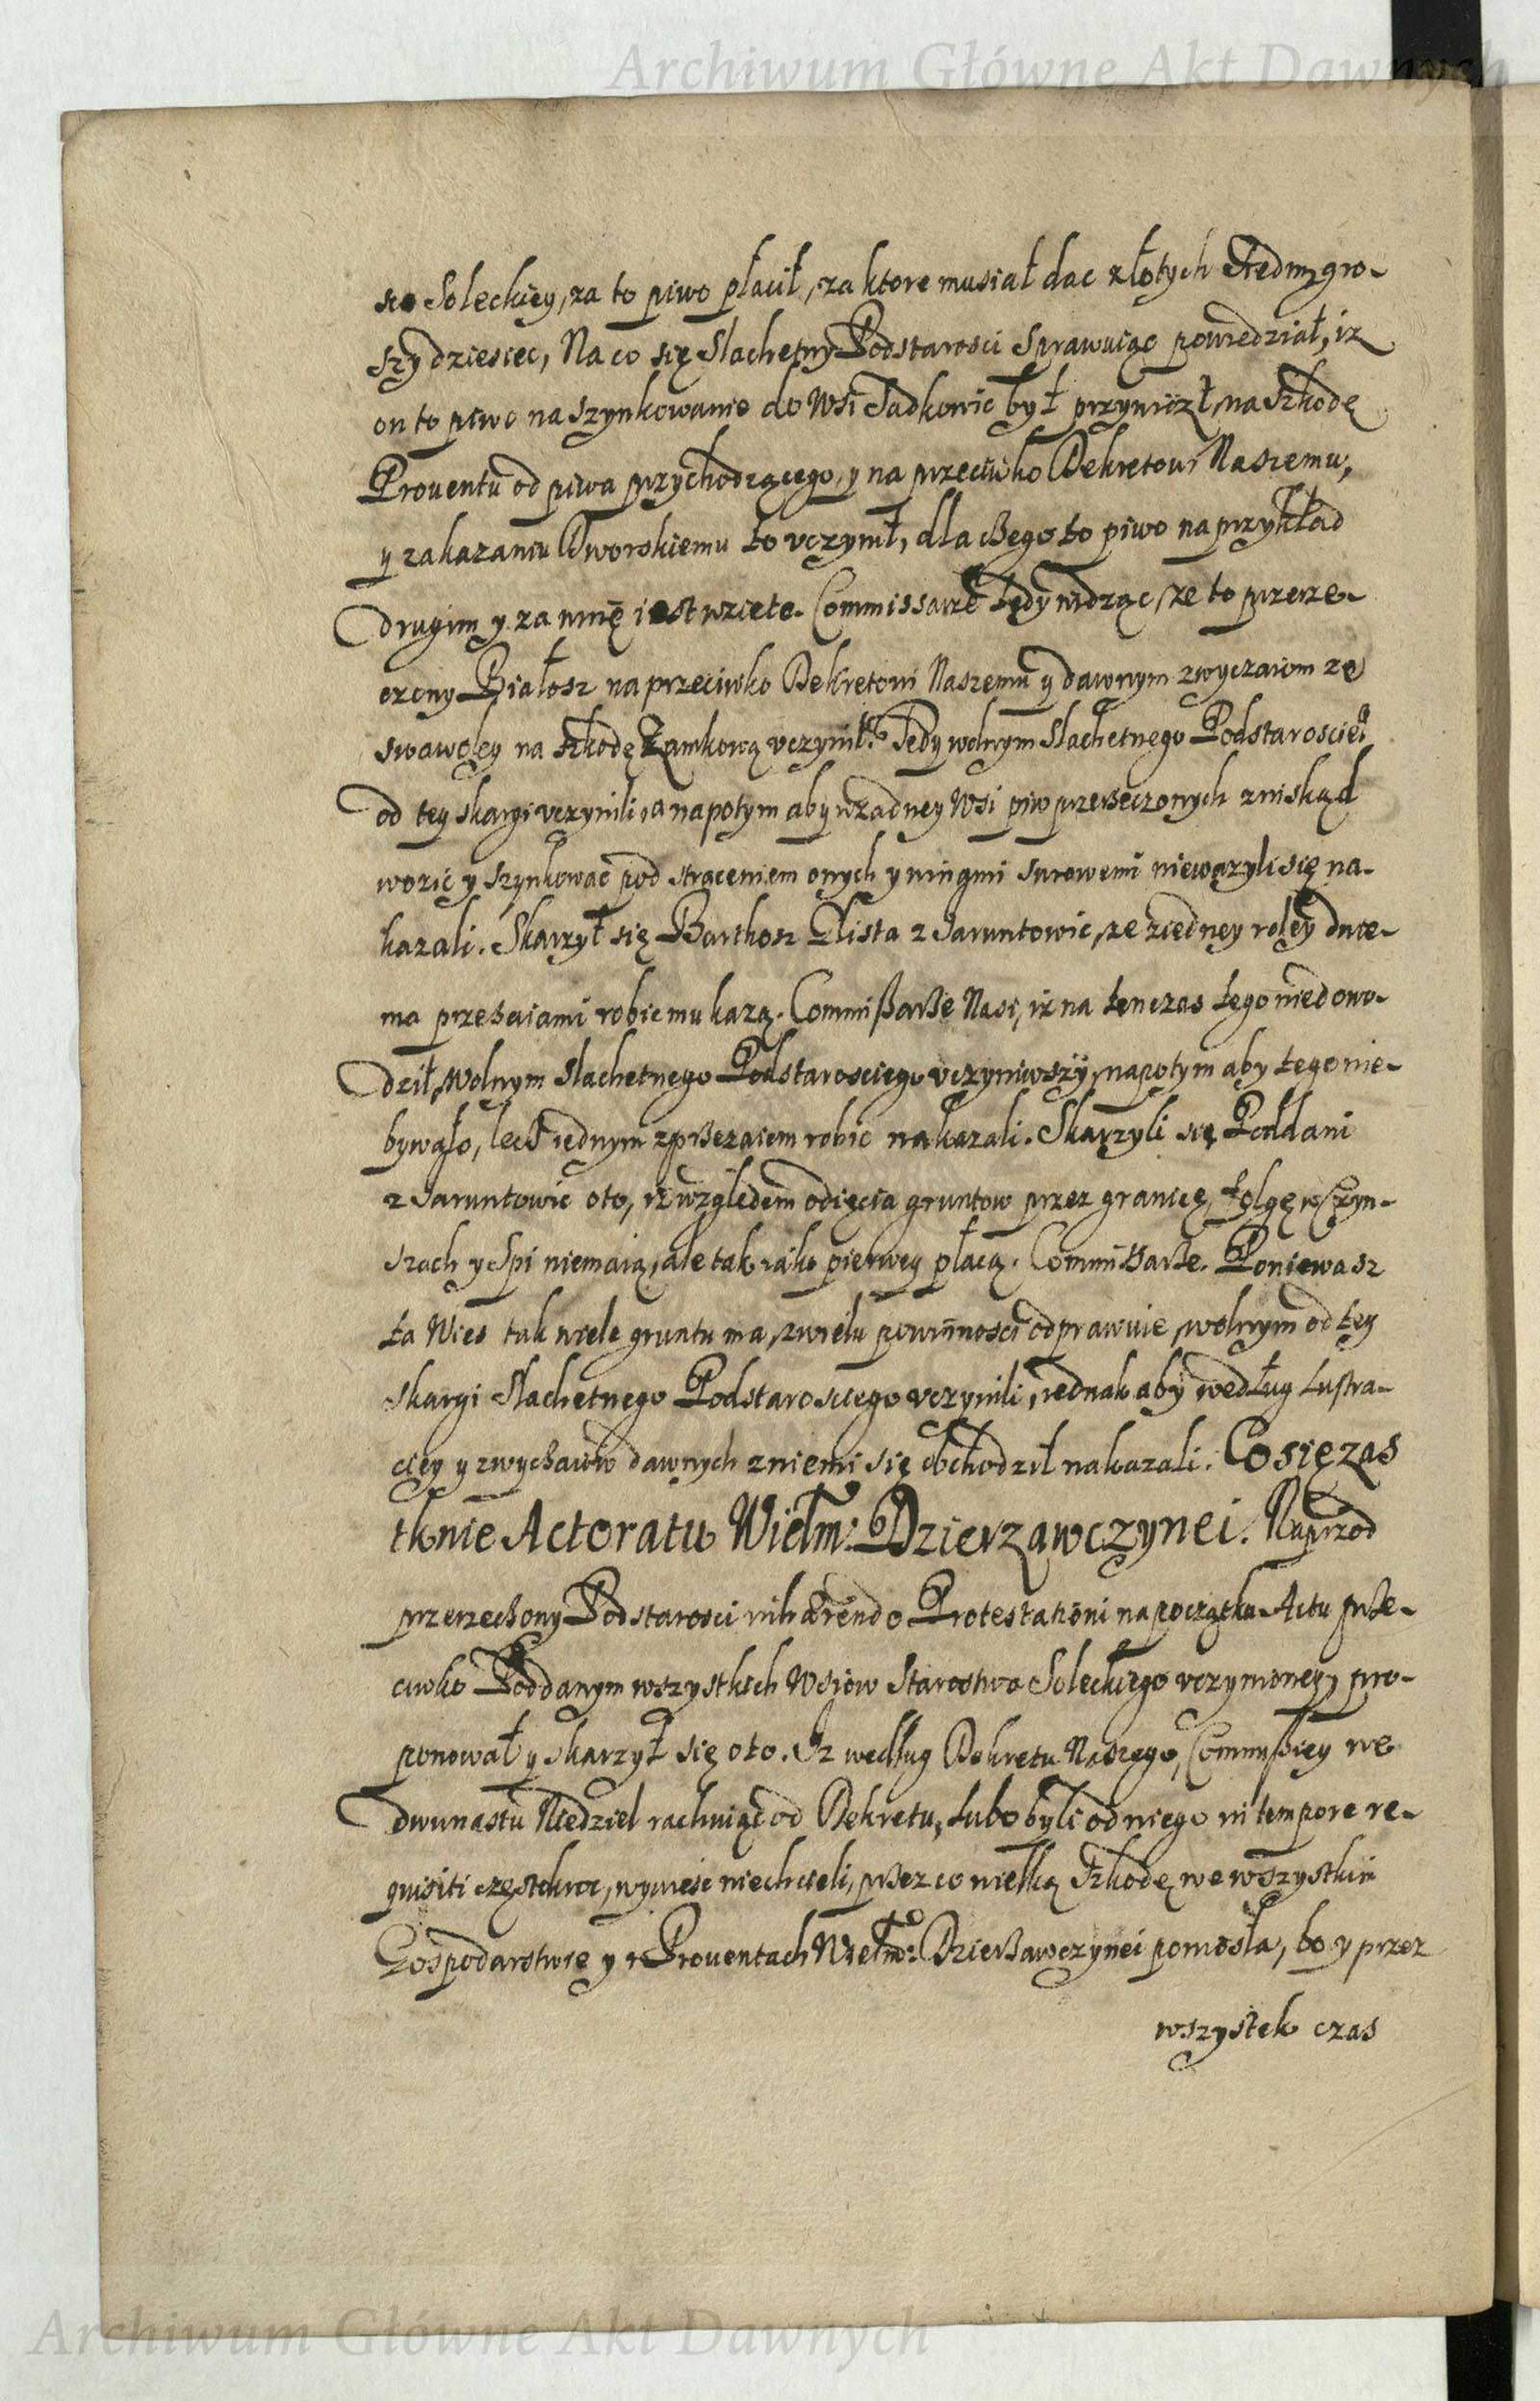 Archiwum Główne Akt Dawnych
Soleckiey, za to piwo płacił, za ktore musiał dac złotych siedm gro-
szy dziesiec, Na co się Slachetny Podstarosci sprawuiąc powiedział, iz
on to piwo na szynkowanie do Wsi Sadkowic był przywiozł, na szkodę
Prouentu od piwa przychodzącego, y na przeciwko Dekretowi Naszemu,
y zakazaniu Dworskiemu to vczynił, dla czego to piwo na przykład
drugim y za winę iest wzięte. Commissarze tędy widząc, ze to przerze-
czony Białosz na przeciwko Dekretowi Naszemu y dawnym zwyczaiom ze
swawoley na szkodę Zamkową vczynił. Tedy wolnym Slachetnego Podstarosciego
od tey skargi vczynili, a napotym aby w zadney Wsi piw przerzeczonych zniskąd
wozic y szynkowac pod straceniem onych y winami surowemi niewazyli się na-
kazali. Skarzył się Barthosz Glista z Jaruntowic, ze z iedney roley dwie-
ma przezaiami robic mu kazą. Commißarze Nasi, iz na tenczas tego niedowo-
dził, Wolnym Slachetnego Podstarosciego vczyniwszy, napotym aby tego nie-
bywało, lecz iednym zprzezaiem robic nakazali. Skarzyli się Poddani
z Jaruntowic oto, iz względem odięcia gruntow przez granicę, folgę w Czyn-
szach y Spi niemaią, ale tak iako pierwey płacą. Commissarze. Poniewasz
ta Wies tak wiele gruntu ma, z wielu powinnosci odprawuie, wolnym od tey
skargi Slachetnego Podstarosciego vczynili, iednak aby według Lustra-
ciey y zwyczaiow dawnych z niemi się obchodził nakazali. Co się zas
tknie Actoratu Wielm: Dzierzawczynei. Naprzod
przerzeczony Podstarosci inhærendo Protestationi na początku Actu prze-
ciwko Poddanym wszystkich Wsiow Starostwa Soleckiego vczynioney, pro-
ponował y skarzył się oto. Iz według Dekretu Naszego, Commißiey we
dwunastu Niedziel rachuiąc od Dekretu, lubo byli od niego in tempore re-
quisiti częstokroc, wywiesc niechcieli, przez co wielką szkodę we wszystkim
Gospodarstwie y w Prouentach Wielm: Dzierzawczynei poniosła, bo y przez
wszystek czas
Archiwum Główne Akt Dawnych